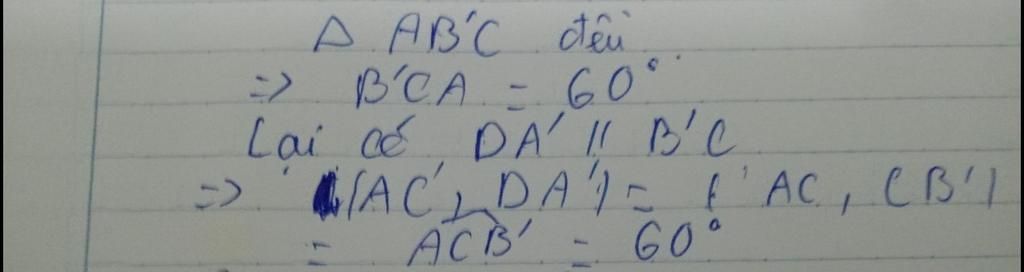 Δ AB'C đều
=> B'CA = 60°
Lại có, DA' // B'C
=> (AC, DA') = (AC, CB')
= ACB' = 60°